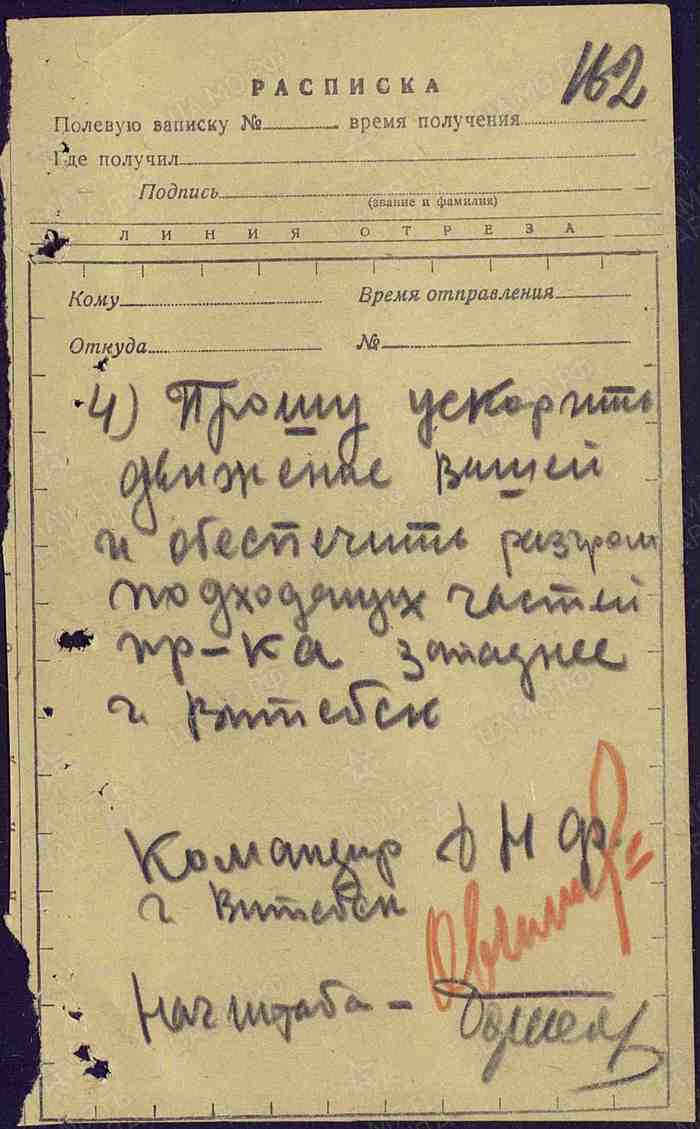 162
РАСПИСКА
Полевую записку № время получения
Где получил
Подпись
(звание и фамилия)
ЛИНИЯ ОТРЕЗА
Кому Время отправления
Откуда №
4) Прошу ускорить
движение вашей
и обеспечить разгром
подходящих частей
пр-ка западнее
г. Витебск
Командир
г. Витебск
Нач штаба -